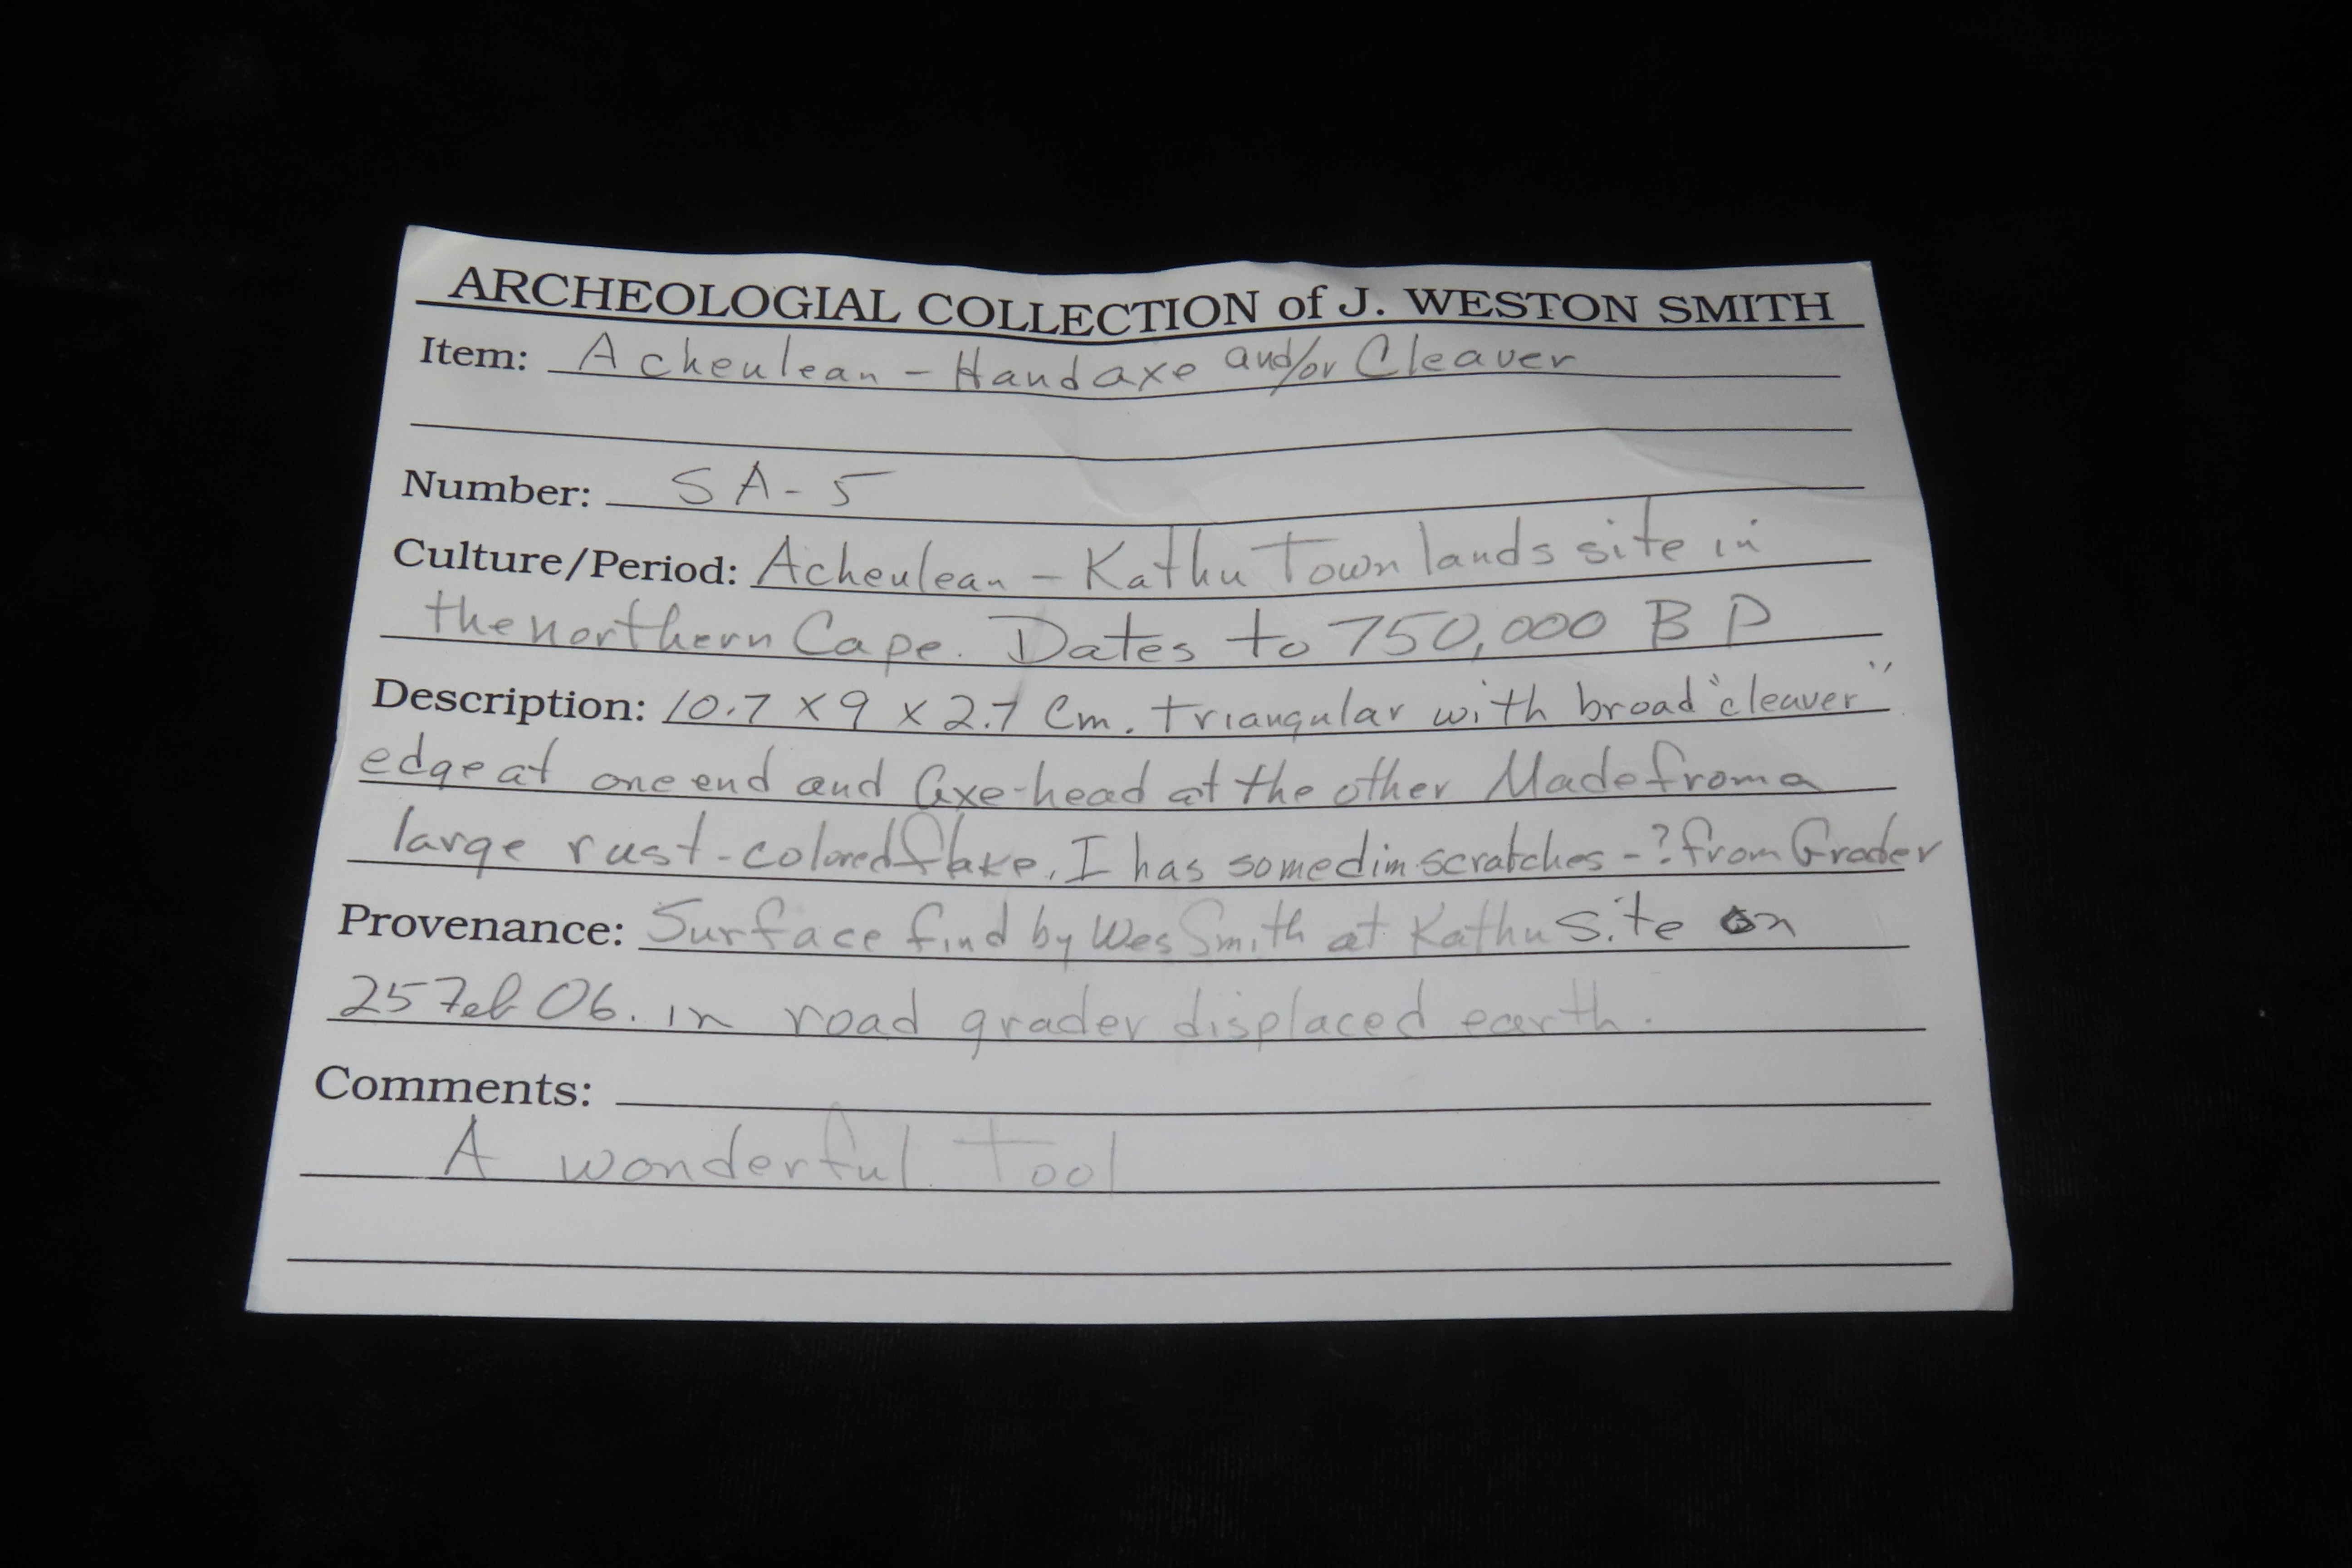 ARCHEOLOGIAL COLLECTION of J. WESTON SMITH
Item: Acheulean - Handaxe and/or Cleaver
Number: SA-5
Culture/Period: Acheulean - Kathu Townlands site in
the northern Cape. Dates to 750,000 BP
Description: 10.7 x 9 x 2.7 Cm. triangular with broad "cleaver"
edge at one end and axe-head at the other Made from a
large rust-colored flake. I has some dim scratches - ? from Grader
Provenance: Surface find by Wes Smith at Kathu site on
25 Feb 06. in road grader displaced earth.
Comments:
A wonderful Tool